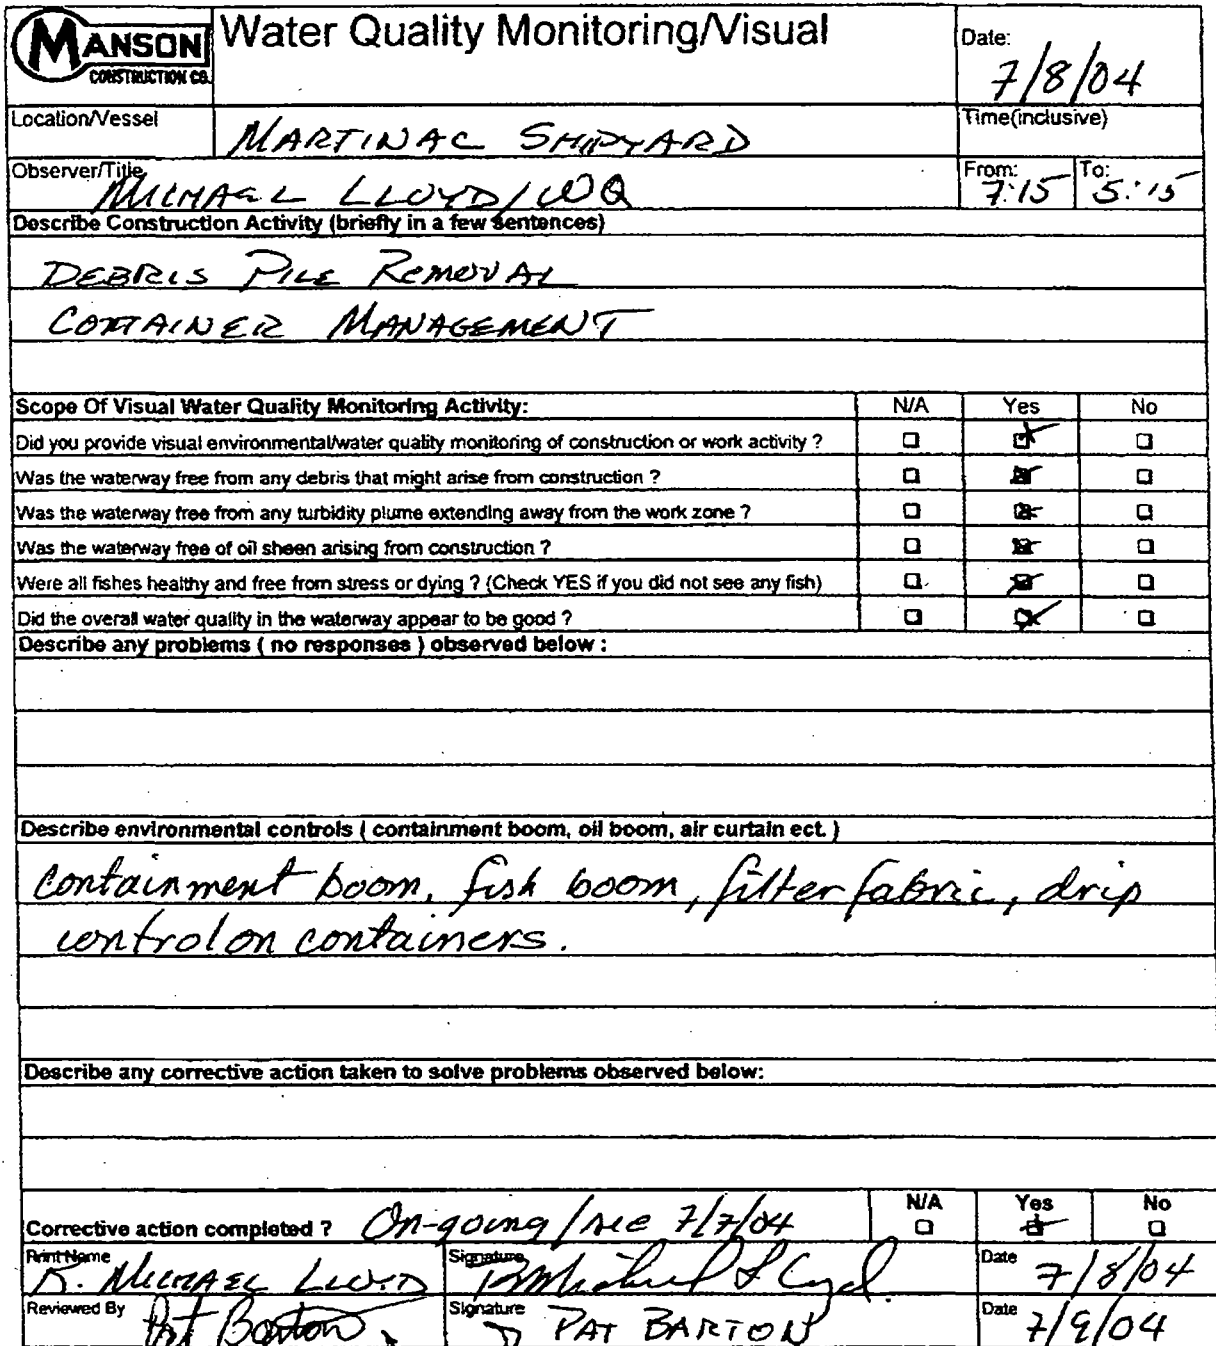 MANSON
CONSTRUCTION CO.
Water Quality Monitoring/Visual
Date:
7/8/04
Location/Vessel
MARTINAC SHIPYARD
Time(inclusive)
Observer/Title
MICHAEL LLOYD/WQ
From:
7:15
To:
5:15
Describe Construction Activity (briefly in a few sentences)
DEBRIS PILE REMOVAL
CONTAINER MANAGEMENT
Scope Of Visual Water Quality Monitoring Activity: N/A Yes No
Did you provide visual environmental/water quality monitoring of construction or work activity ?
Was the waterway free from any debris that might arise from construction ?
Was the waterway free from any turbidity plume extending away from the work zone ?
Was the waterway free of oil sheen arising from construction ?
Were all fishes healthy and free from stress or dying ? (Check YES if you did not see any fish)
Did the overall water quality in the waterway appear to be good ?
Describe any problems ( no responses ) observed below :
Describe environmental controls ( containment boom, oil boom, air curtain ect. )
containment boom, fish boom, filter fabric, drip
control on containers.
Describe any corrective action taken to solve problems observed below:
Corrective action completed ? On-going/see 7/7/04 N/A Yes No
Print Name
R. MICHAEL LLOYD
Signature
R Michael Lloyd
Date
7/8/04
Reviewed By
Pat Barton
Signature
PAT BARTON
Date
7/9/04